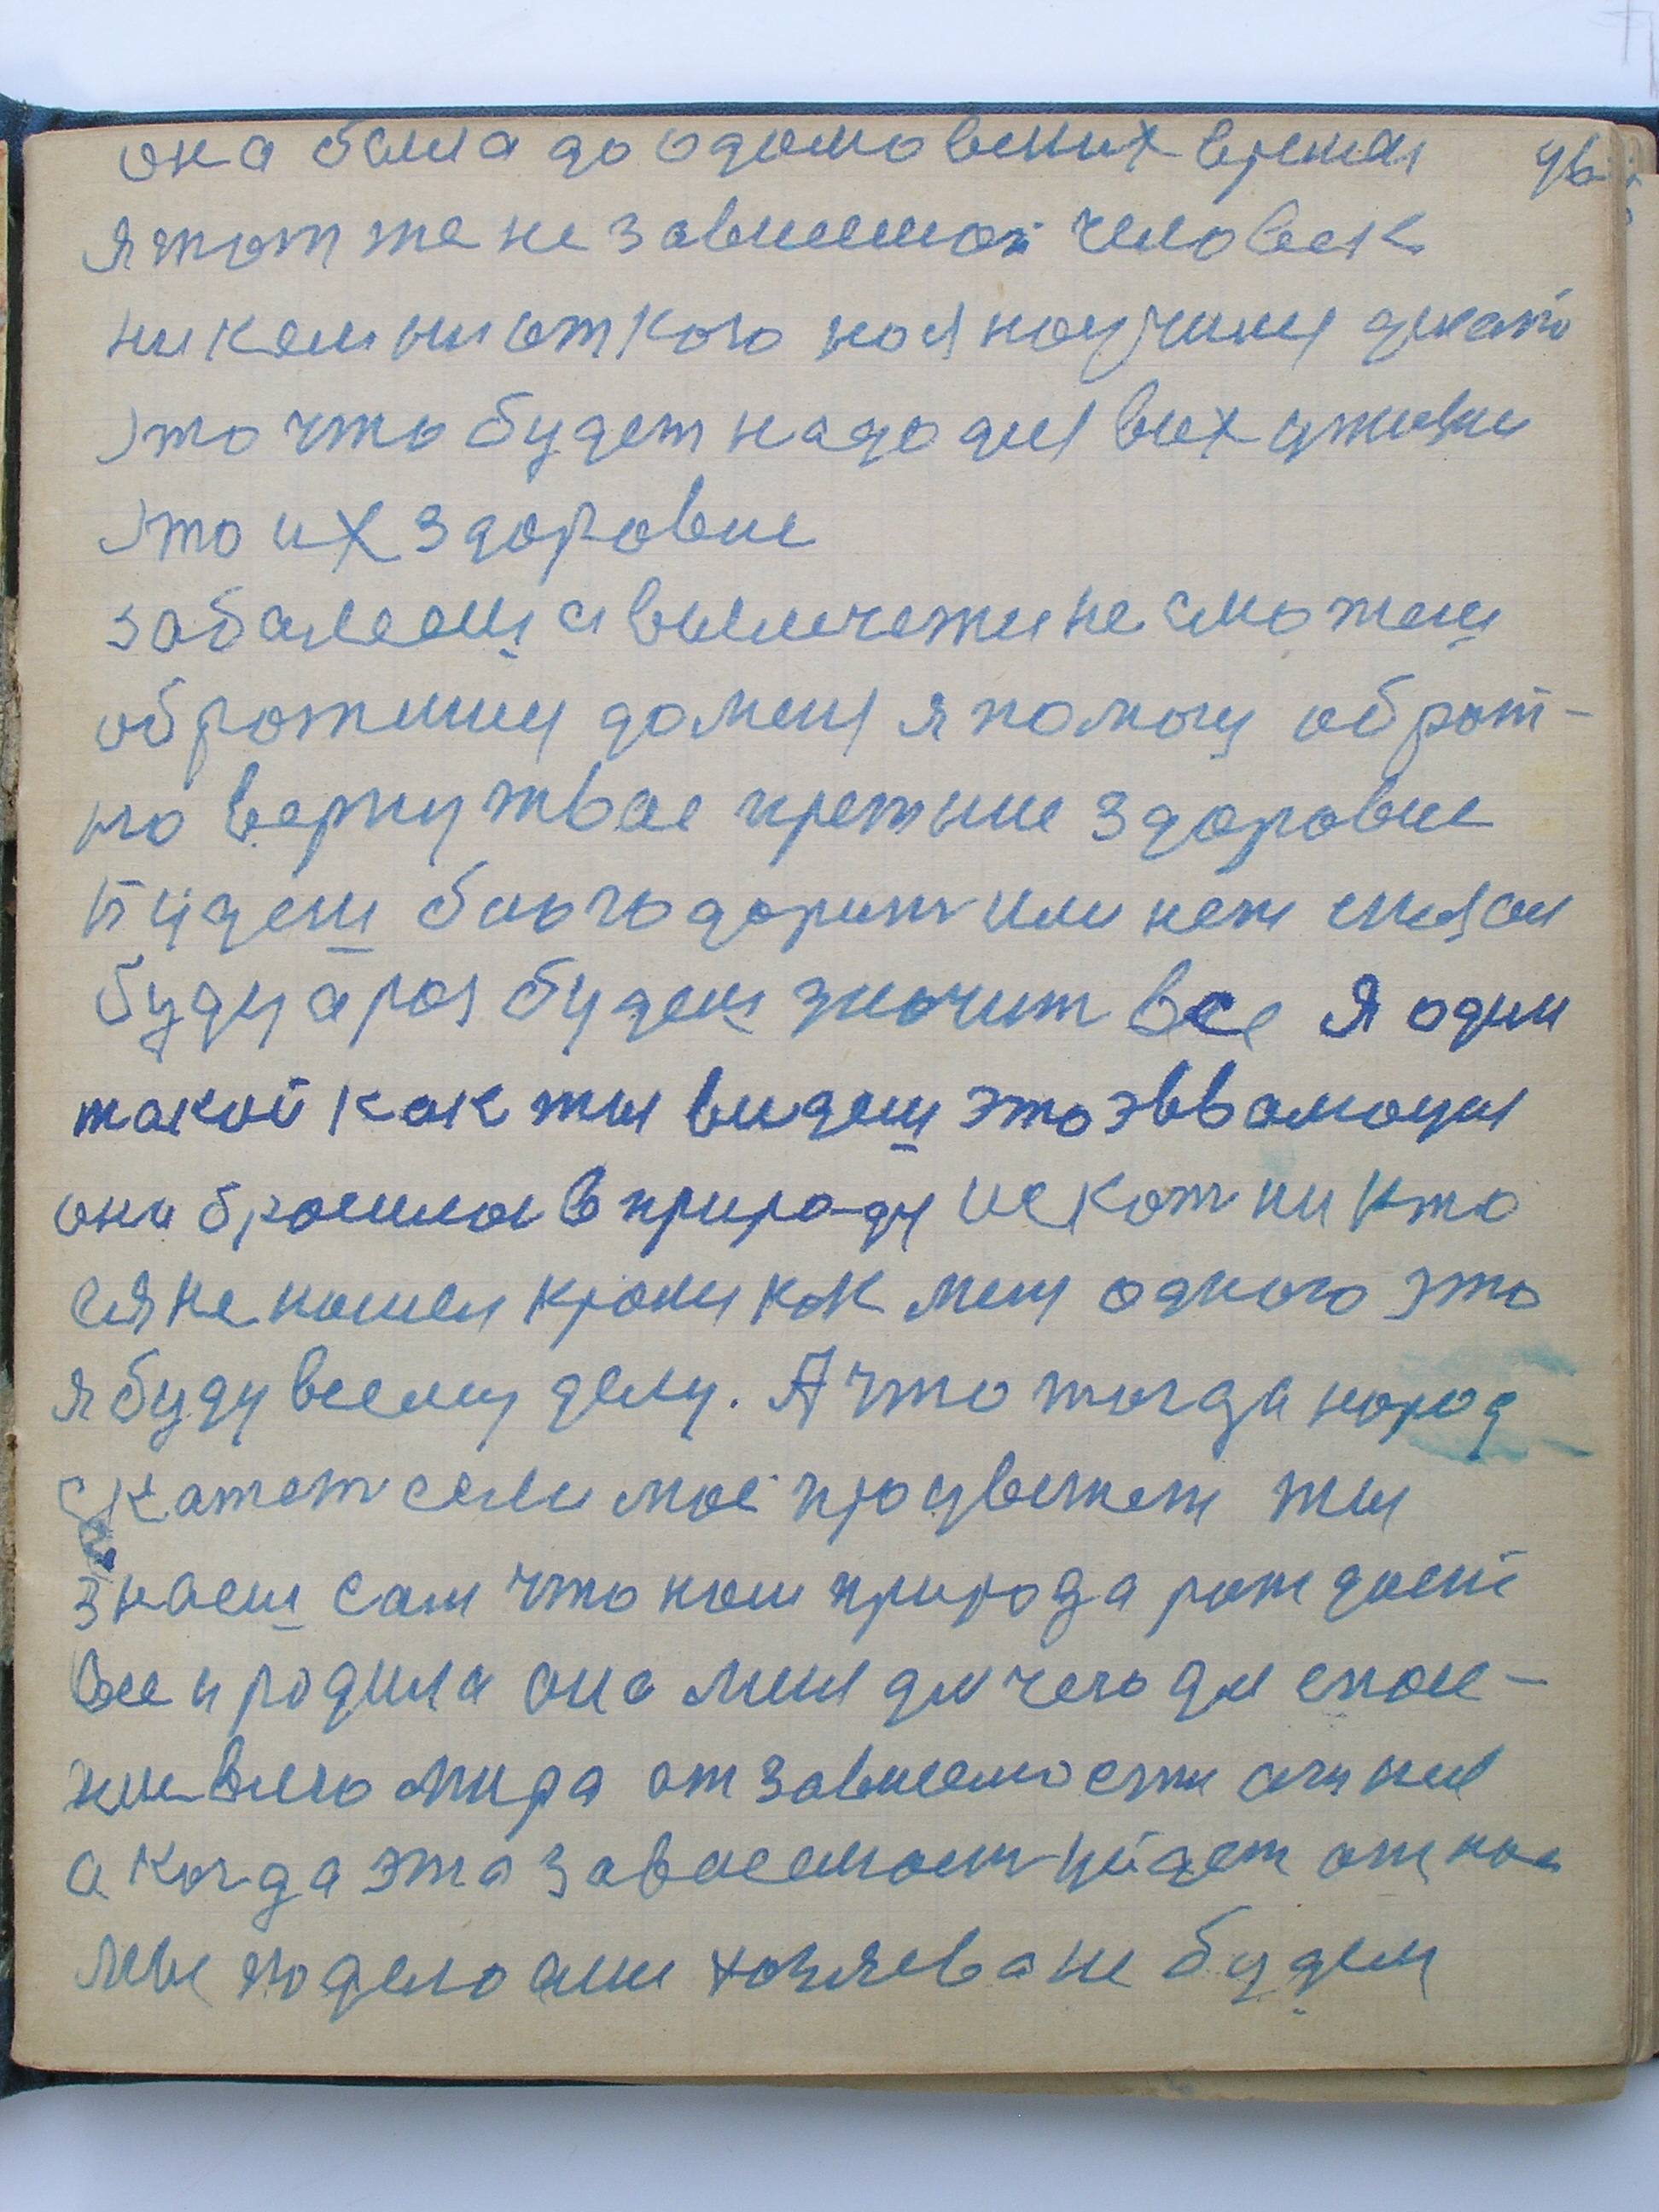 она была до одамовских время
я тот же не зависемой человек
никем ни от кого но я научился делать
это что будет надо для всех а живи
это их здоровие
заболееш а выличежи не сможеш
обротишся до меня я помогу оброт-
но верну твае прежние здоровие
будеш благодарит или нет
буду а раз будеш значит все я один
такой как ты видеш это эввалюция
она бросилас в природу искат никто
ея не нашел кроми как мен одного это
я буду всему делу. А что тогда народ
скажет если мое процветет ты
знаеш сам что нам природа рождает
все и родила она мине для чего для спасе-
ния всего мира от зависемости
а когда эта завесемост уйдет от нас
мы хозяева не будем